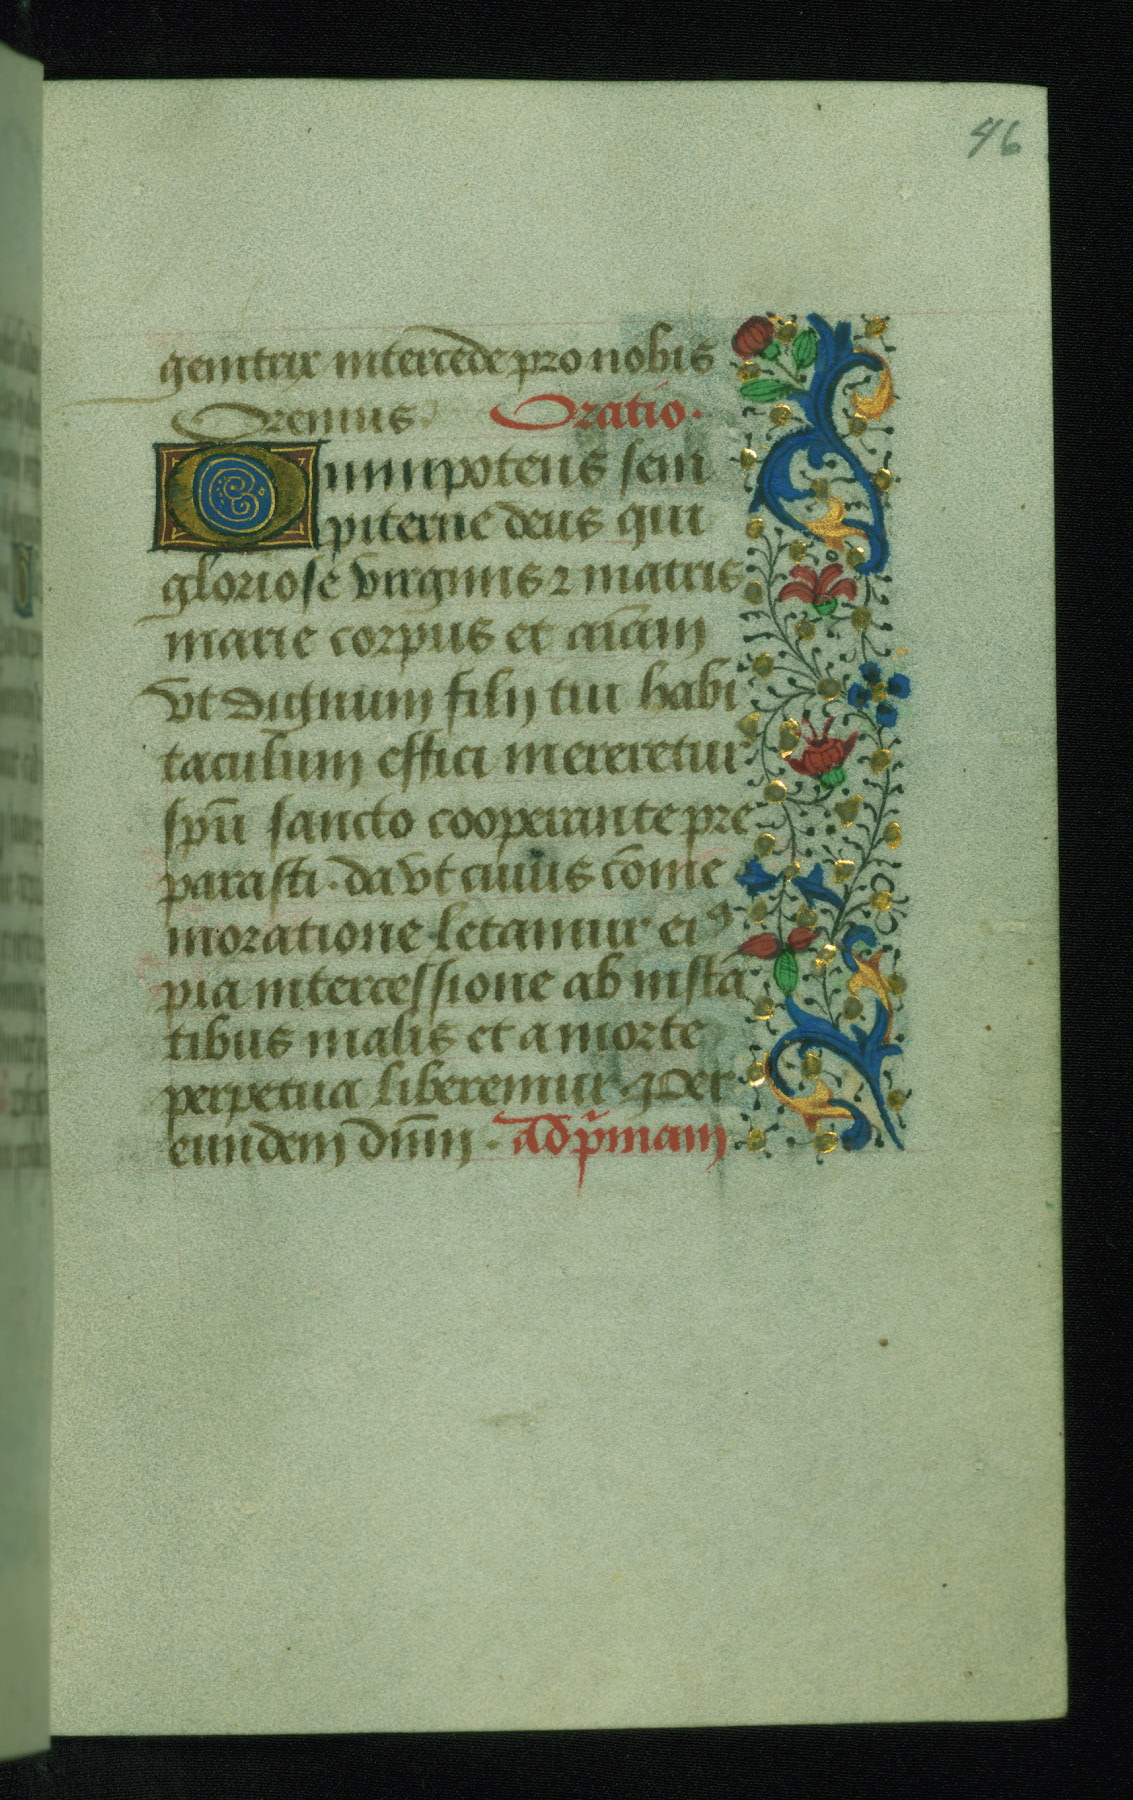 46
genitrix intercede pro nobis
Oremus. Oratio.
Omnipotens sem
piterne deus qui
gloriose virginis ⁊ matris
marie corpus et aīam
vt dignum filij tui habi
taculum effici mereretur
spū sancto cooperante pre
parasti. da vt cuius cōme
moratione letamur eiꝰ
pia intercessione ab insta
tibus malis et a morte
perpetua liberemur. Per
eundem dn̄m. ad pͥmam